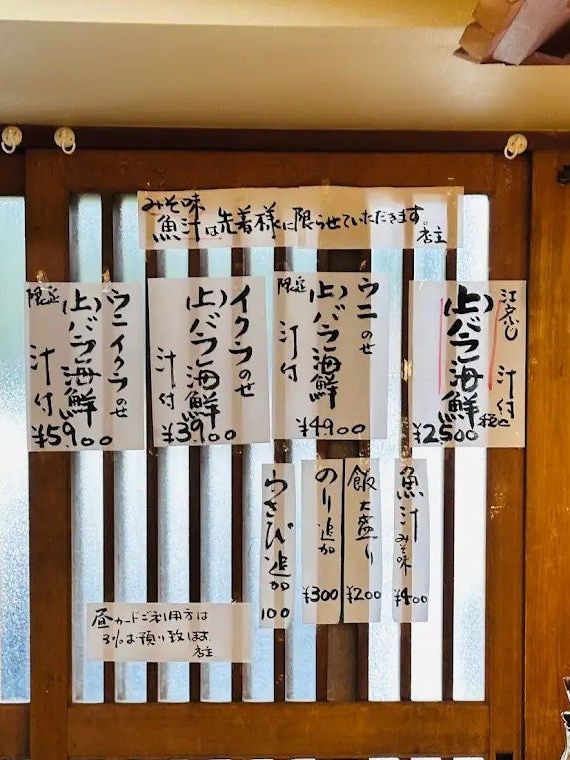 みそ味
魚汁は先着様に限らせていただきます。
店主
上バラ海鮮
汁付
税込
¥2500
ウニのせ
(上)バラ海鮮
限定
汁付
¥4900
イクラのせ
(上)バラ海鮮
汁付
¥3900
ウニイクラのせ
(上)バラ海鮮
限定
汁付
¥5900
魚汁
みそ味
¥400
飯大盛り
¥200
のり追加
¥300
わさび追加
100
昼カードご利用方は
3%お預り致します。
店主